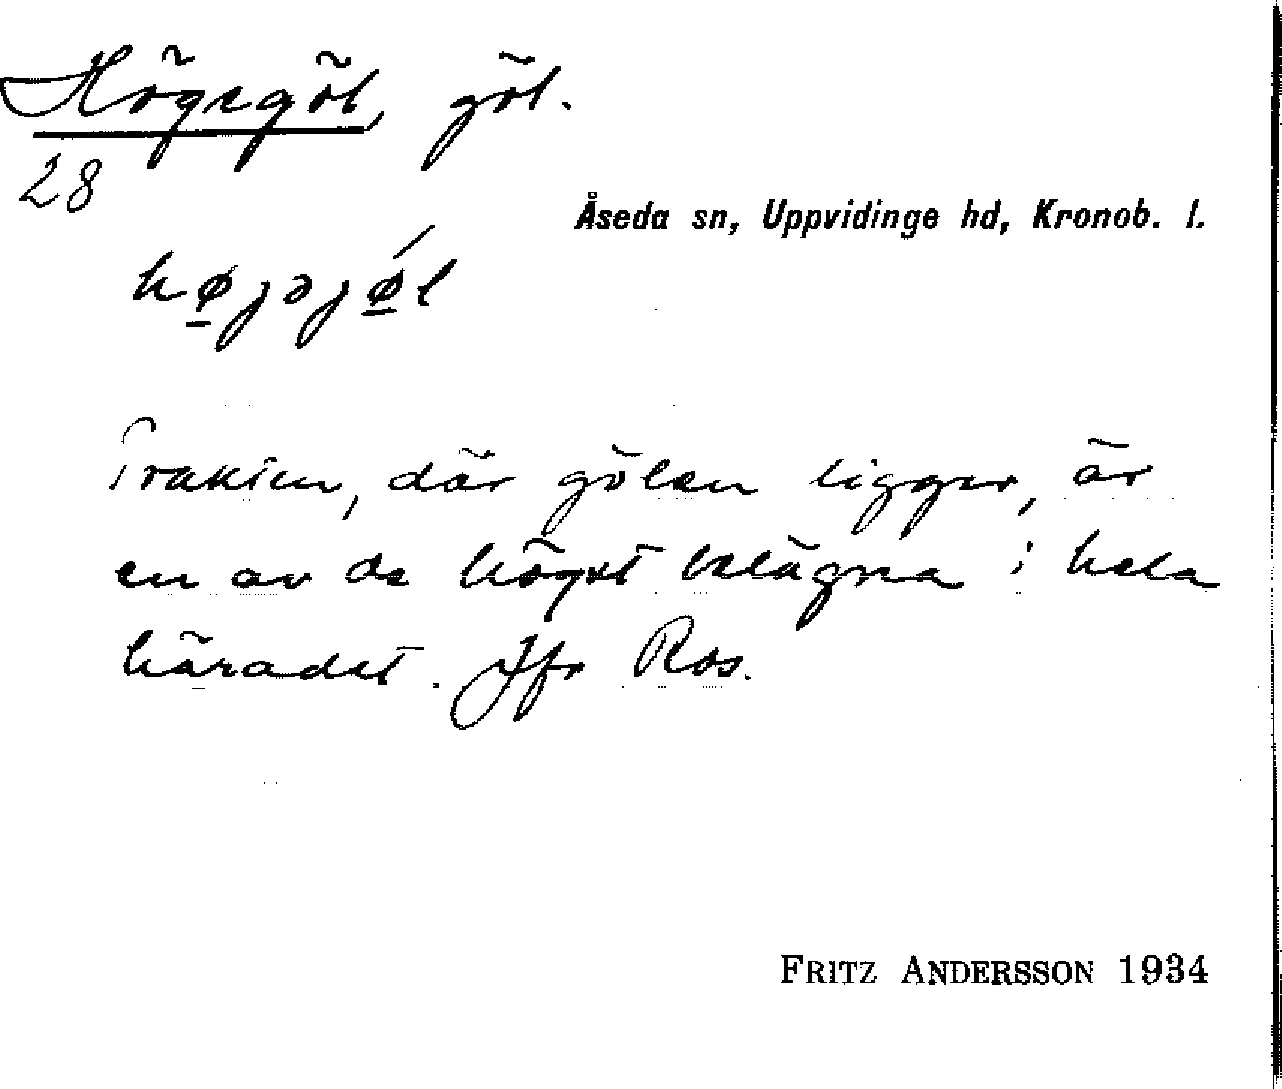 Högegöl, göl.
28
Åseda sn, Uppvidinge hd, Kronob. l.
højəjǿl
Trakten, där gölen ligger, är
en av de högst belägna i hela
häradet. Jfr Ros.
FRITZ ANDERSSON 1934